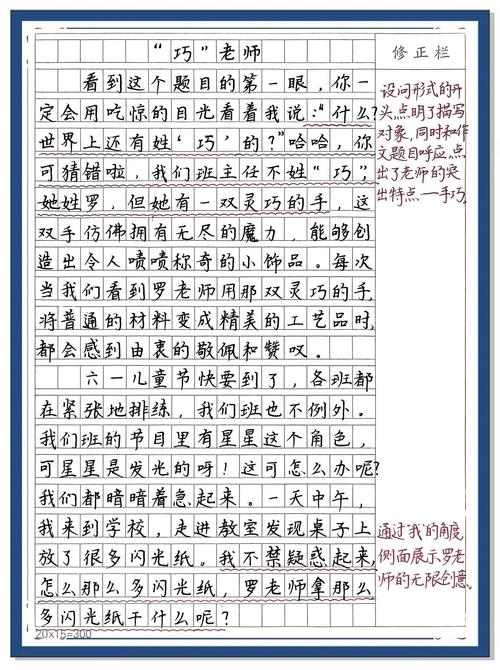 “巧”老师
看到这个题目的第一眼，你一
定会用吃惊的目光看着我说：“什么？
世界上还有姓‘巧’的？”哈哈，你
可猜错啦，我们班主任不姓“巧”，
她姓罗，但她有一双灵巧的手，这
双手仿佛拥有无尽的魔力，能够创
造出令人啧啧称奇的小饰品。每次
当我们看到罗老师用那双灵巧的手，
将普通的材料变成精美的工艺品时，
都会感到由衷的敬佩和赞叹。
六一儿童节快要到了，各班都
在紧张地排练，我们班也不例外。
我们班的节目里有星星这个角色，
可星星是发光的呀！这可怎么办呢？
我们都暗暗着急起来。一天中午，
我来到学校，走进教室发现桌子上
放了很多闪光纸。我不禁疑惑起来，
怎么那么多闪光纸，罗老师拿那么
多闪光纸干什么呢？
20×15=300
修正栏
设问形式的开
头点明了描写
对象，同时和作
文题目呼应，点
出了老师的突
出特点—手巧
通过“我”的角度，
侧面展示罗老
师的无限创意。